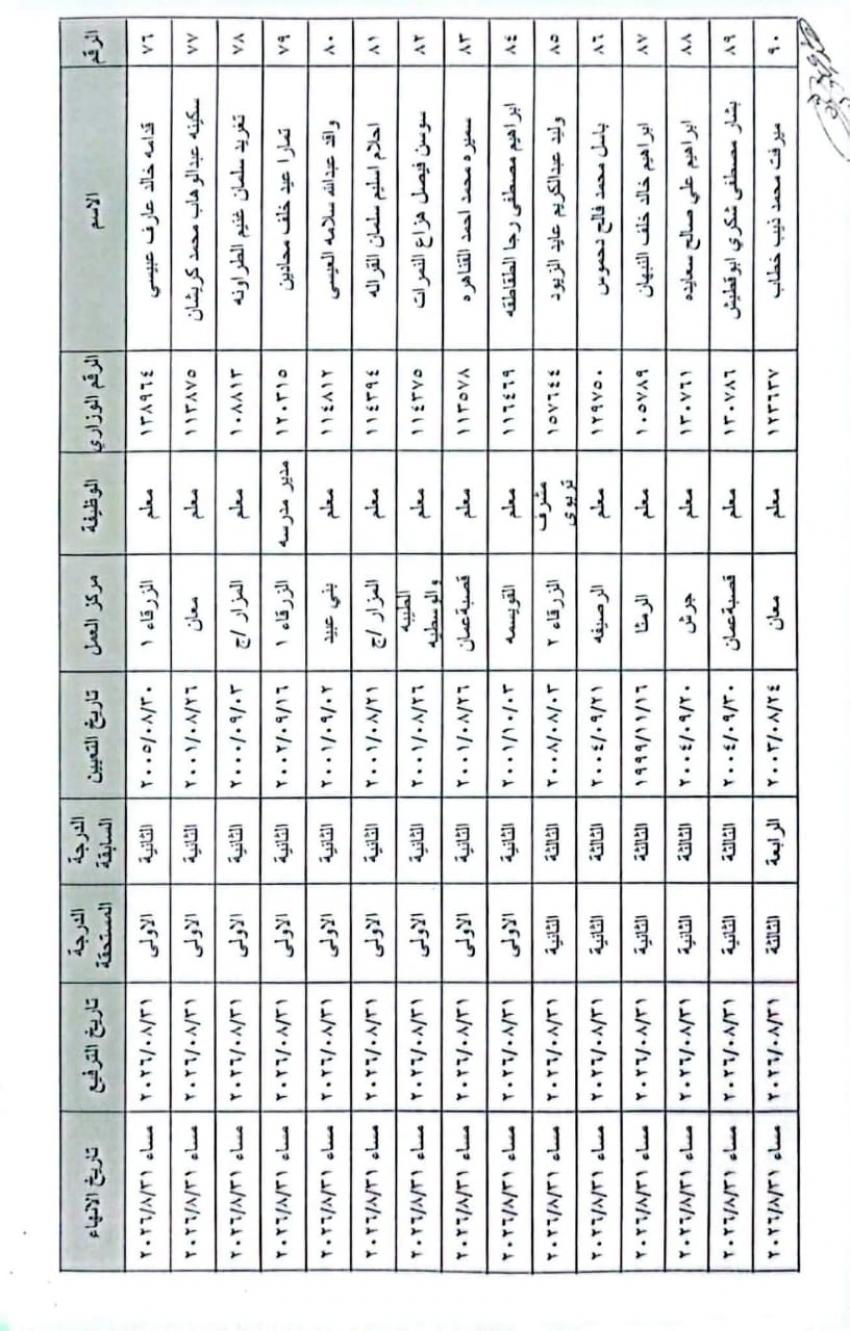 الرقم الاسم الرقم الوزاري الوظيفة مركز العمل تاريخ التعيين الدرجة السابقة الدرجة المستحقة تاريخ الترفيع تاريخ الانهاء
٧٦ قدامه خالد عارف عبيسي ١٣٨٩٦٤ معلم الزرقاء ١ ٢٠٠٥/٠٨/٣٠ الثانية الاولى ٢٠٢٦/٠٨/٣١ مساء ٢٠٢٦/٨/٣١
٧٧ سكينه عبدالوهاب محمد كريشان ١١٣٨٧٥ معلم معان ٢٠٠١/٠٨/٢٦ الثانية الاولى ٢٠٢٦/٠٨/٣١ مساء ٢٠٢٦/٨/٣١
٧٨ تغريد سلمان غنيم الطراونه ١٠٨٨١٣ معلم المزار /ج ٢٠٠٠/٠٩/٠٣ الثانية الاولى ٢٠٢٦/٠٨/٣١ مساء ٢٠٢٦/٨/٣١
٧٩ تمارا عيد خلف محادين ١٢٠٣١٥ مدير مدرسه الزرقاء ١ ٢٠٠٢/٠٩/١٦ الثانية الاولى ٢٠٢٦/٠٨/٣١ مساء ٢٠٢٦/٨/٣١
٨٠ واقد عبدالله سلامه العيسى ١١٤٨١٢ معلم بني عبيد ٢٠٠١/٠٩/٠٢ الثانية الاولى ٢٠٢٦/٠٨/٣١ مساء ٢٠٢٦/٨/٣١
٨١ احلام اسليم سلمان القراله ١١٤٣٩٤ معلم المزار /ج ٢٠٠١/٠٨/٢١ الثانية الاولى ٢٠٢٦/٠٨/٣١ مساء ٢٠٢٦/٨/٣١
٨٢ سوسن فيصل هزاع النمرات ١١٤٣٧٥ معلم الطيبه والوسطيه ٢٠٠١/٠٨/٢٦ الثانية الاولى ٢٠٢٦/٠٨/٣١ مساء ٢٠٢٦/٨/٣١
٨٣ سميره محمد احمد القناهره ١١٣٥٧٨ معلم قصبة عمان ٢٠٠١/٠٨/٢٦ الثانية الاولى ٢٠٢٦/٠٨/٣١ مساء ٢٠٢٦/٨/٣١
٨٤ ابراهيم مصطفى رجا الطقاطقه ١١٦٤٦٩ معلم القويسمه ٢٠٠١/١٠/٠٣ الثانية الاولى ٢٠٢٦/٠٨/٣١ مساء ٢٠٢٦/٨/٣١
٨٥ وليد عبدالكريم عايد الزيود ١٥٧٦٤٤ مشرف تربوي الزرقاء ٢ ٢٠٠٨/٠٨/٠٣ الثالثة الثانية ٢٠٢٦/٠٨/٣١ مساء ٢٠٢٦/٨/٣١
٨٦ باسل محمد فالح دحموس ١٢٩٧٥٠ معلم الرصيفه ٢٠٠٤/٠٩/٢١ الثالثة الثانية ٢٠٢٦/٠٨/٣١ مساء ٢٠٢٦/٨/٣١
٨٧ ابراهيم خالد خلف النبهان ١٠٥٧٨٩ معلم الرمثا ١٩٩٩/١١/١٦ الثالثة الثانية ٢٠٢٦/٠٨/٣١ مساء ٢٠٢٦/٨/٣١
٨٨ ابراهيم علي صالح سعايده ١٣٠٧٦١ معلم جرش ٢٠٠٤/٠٩/٢٠ الثالثة الثانية ٢٠٢٦/٠٨/٣١ مساء ٢٠٢٦/٨/٣١
٨٩ بشار مصطفى شكري ابوقطيش ١٣٠٧٨٦ معلم قصبة عمان ٢٠٠٤/٠٩/٣٠ الثالثة الثانية ٢٠٢٦/٠٨/٣١ مساء ٢٠٢٦/٨/٣١
٩٠ ميرفت محمد ذيب خطاب ١٢٣٦٣٧ معلم معان ٢٠٠٣/٠٨/٢٤ الرابعة الثالثة ٢٠٢٦/٠٨/٣١ مساء ٢٠٢٦/٨/٣١